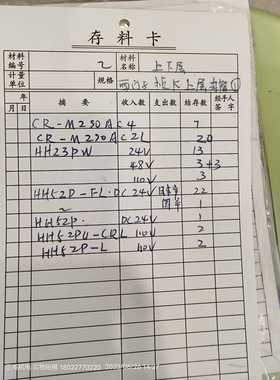 存料卡
材料编号 2 材料名称 上下层
计量单位 规格 西门子 柜上层 ①
年 月 日 摘要 收入数 支出数 结存数 经手人签字
CR-M230AC4 7
CR-M220AC2L 20
HH23PW 24V 13
48V 3+3
110V 3
HH52P-FL·DC24V 日本 22
~ 国 1
HH52P. DC24V 1
HH52PU-CRL 110V 2
HH52P-L 40V 2
实拍实描 18022770220 2023/09/26 14:37